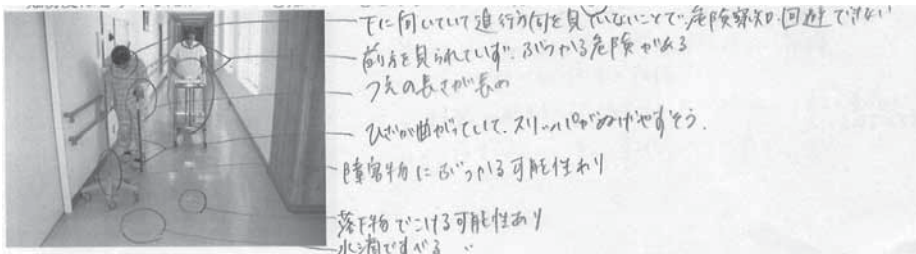 下に向いていて進行方向を見ていないことで、危険察知・回避できない
前方を見られていず、ぶつかる危険がある
つえの長さが長め
ひざが曲がっていて、スリッパがぬげやすそう。
障害物にぶつかる可能性あり
落下物でこける可能性あり
水滴ですべる 〃